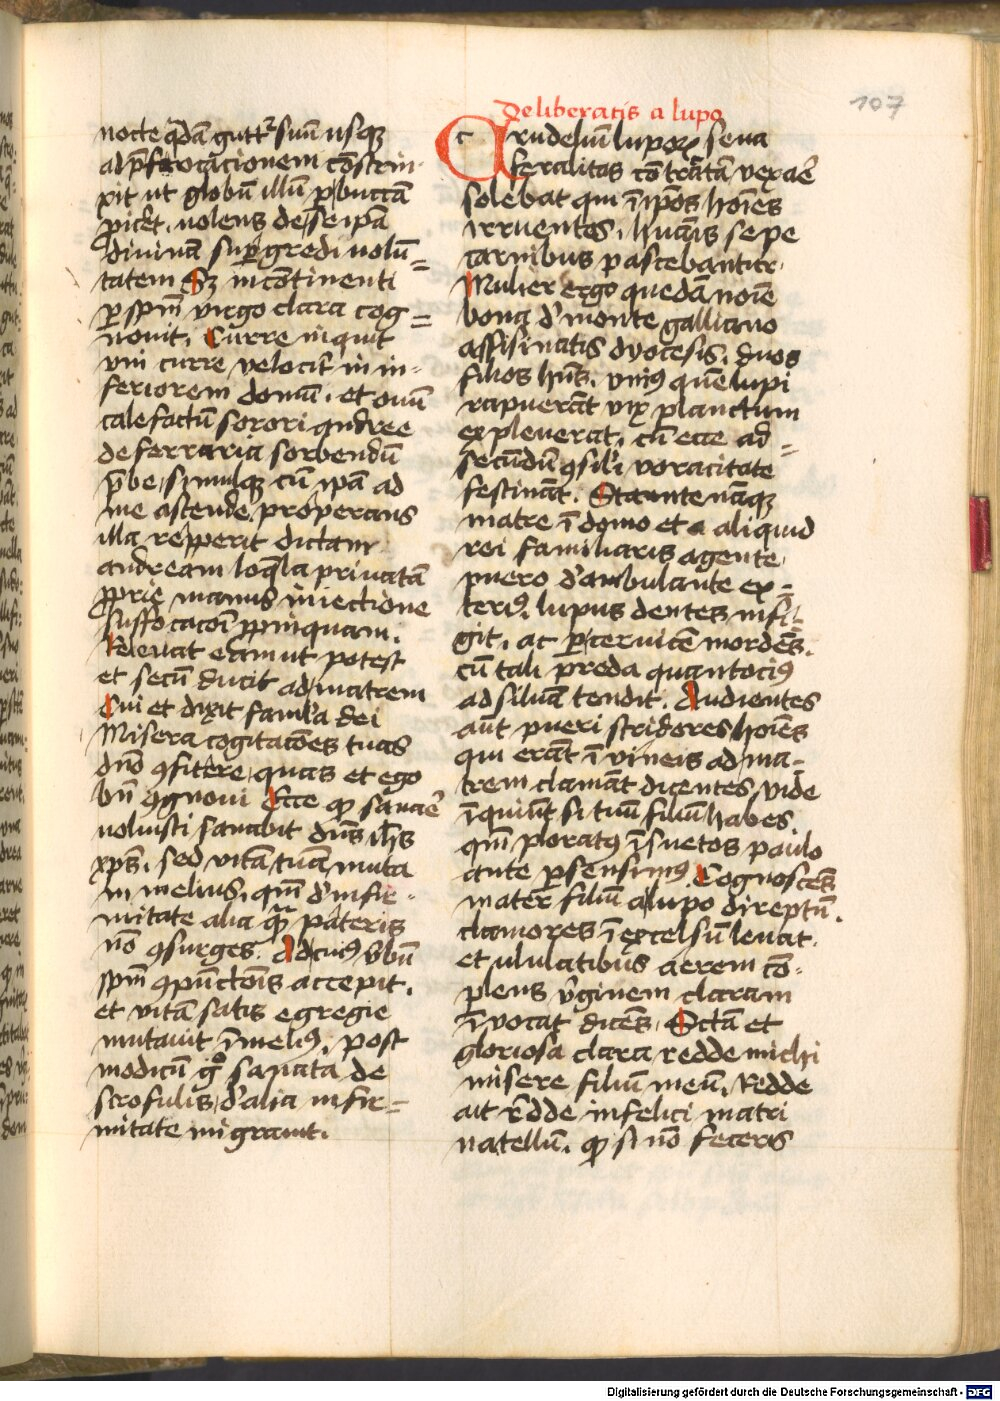 107
nocte qdã gutt² suũ usqȝ
ad p̄focacionem cõstrin-
xit ut globũ illũ p buccã
vicʒet. nolens de se ipã
divinã supgredi volũ=
tatem Sȝ incõtinenti
p sp̄m virgo clara cog=
novit. Curre inquit
uni curre velociť in in-
feriorem domũ. et ovũ
calefactũ sorori andree
de ferraria sorbendũ
p̄be, simulqȝ cũ ipã ad
me ascende. properans
illa repperit dictam
andream loq̃la privatã
pprie manus iniectione
suffocacõi ppinquam.
Relevat eam ut potest
et secũ ducit ad matrem
Cui et dixit famľa dei
Misera cogitacões tuas
dño ꝯfitere, quas et ego
bñ ꝯgnovi Ecce qđ sanaʳe
voluisti sanabit dñs ih̃s
xp̄s. sed vitã tuã muta
in melius, qm̃ đ infir-
mitate alia quã pateris
nõ ꝯsurges. Ad cuiꝯ ꝟbũ
sp̄m ꝯpũctõis accepit.
et vitã satis egregie
mutavit ĩ meliꝯ, post
modicũ gº sanata de
scrofulis, đ alia infir=
mitate migravit.
De liberatis a lupo
Crudeliũ lupoꝝ seva
feralitas cõtratã vexaʳe
solebat qui ĩ ipõs hoĩes
irruentes, huãis sepe
carnibus pascebantur.
Mulier ergo quedã noĩe
bona đ monte galliano
assisinatis dyocesis, duos
filios hñs. uniꝯ quẽ lupi
rapuerãt vix planctum
expleverat. cũ ecce ad=
secũdũ ꝯsiľi voracitate
festinãt. Stante nãqȝ
matre ĩ domo et a aliquid
rei familiaris agente,
puero đambulante ex=
teriꝯ, lupus dentes infi=
git, ac p cervicẽ mordẽs,
cũ tali preda quantociꝯ
ad silvã tendit. Audientes
aũt pueri stridores hoĩes
qui erãt ĩ vineis ad ma-
trem clamãt dicentes, vide
ĩquiũt si tuũ filiũ habes,
qm̃ ploratꝯ ĩsuetos paulo
ante psensimꝯ. Cognoscẽs
mater filiũ a lupo direptũ.
clamores ĩ excelsũ levat.
et ululatibus aerem cõ-
plens ꝟginem claram
ĩvocat dicẽs. Sctã et
gloriosa clara redde michi
misere filiũ meũ, Redde
ait ʳdde infelici matri
natellũ. qđ si nõ feceris
Digitalisierung gefördert durch die Deutsche Forschungsgemeinschaft - DFG